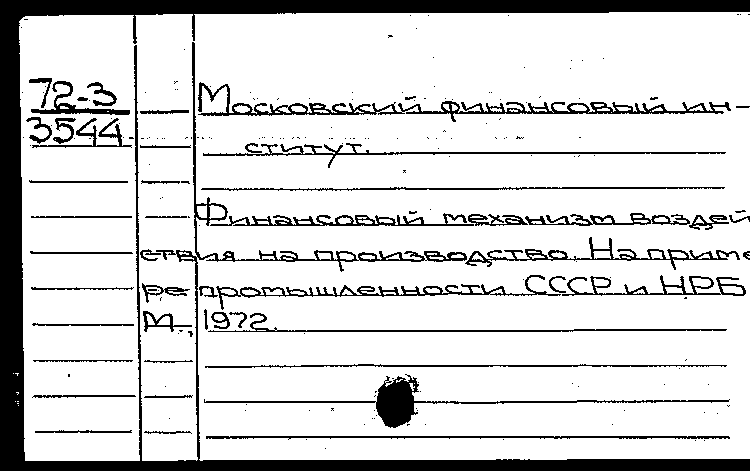 72-3
3544
Московский финансовый ин-
ститут.
Финансовый механизм воздей
ствия на производство. На приме
ре промышленности СССР и НРБ
М., 1972.